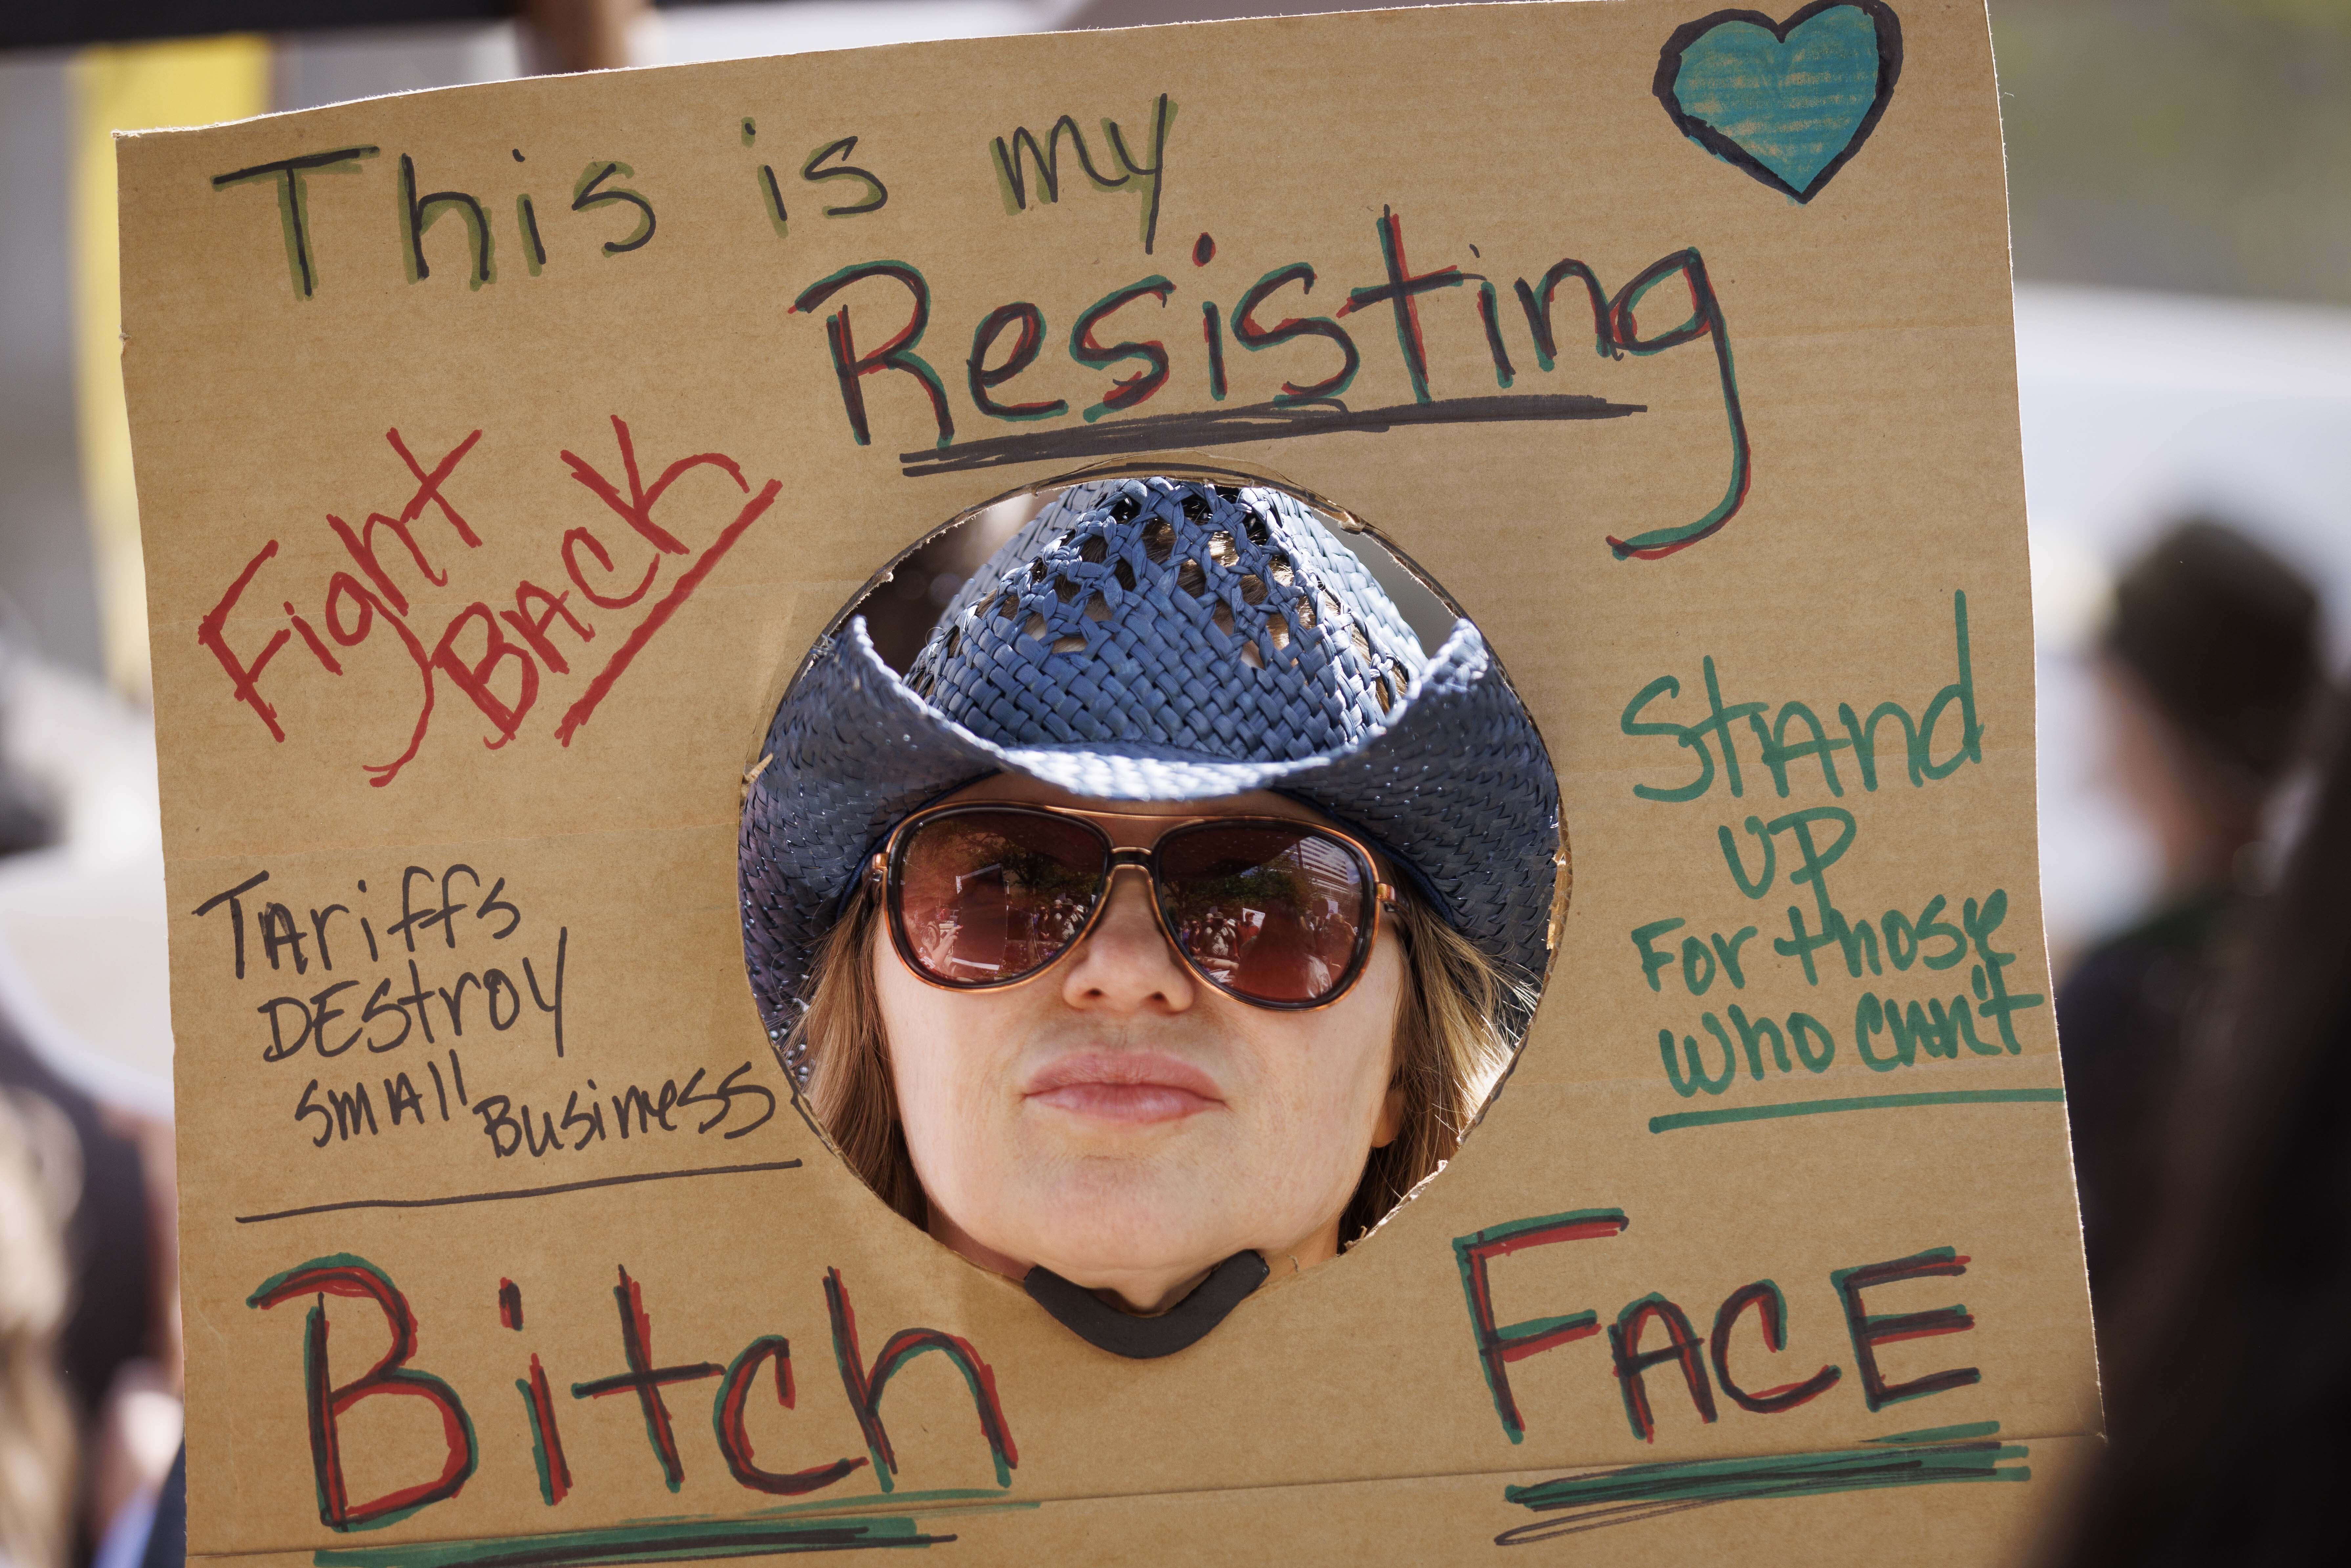 This is my
Resisting
Fight
BACK
Tariffs
DEStroy
small Business
StAnd
UP
For those
who can't
Bitch FACE